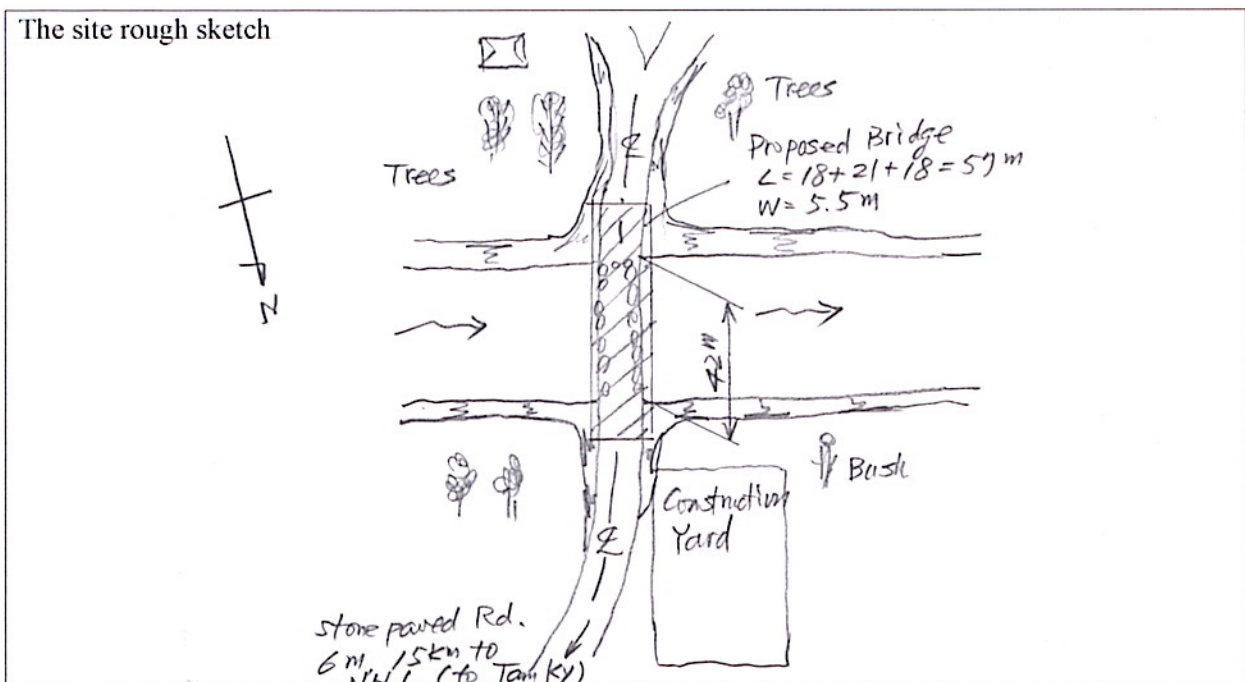 The site rough sketch
Trees
Proposed Bridge
L=18+21+18=57m
W=5.5m
Trees
℄
N
42m
Bush
Construction
Yard
℄
stone paved Rd.
6m, 15km to
NH1 (to Tam Ky)